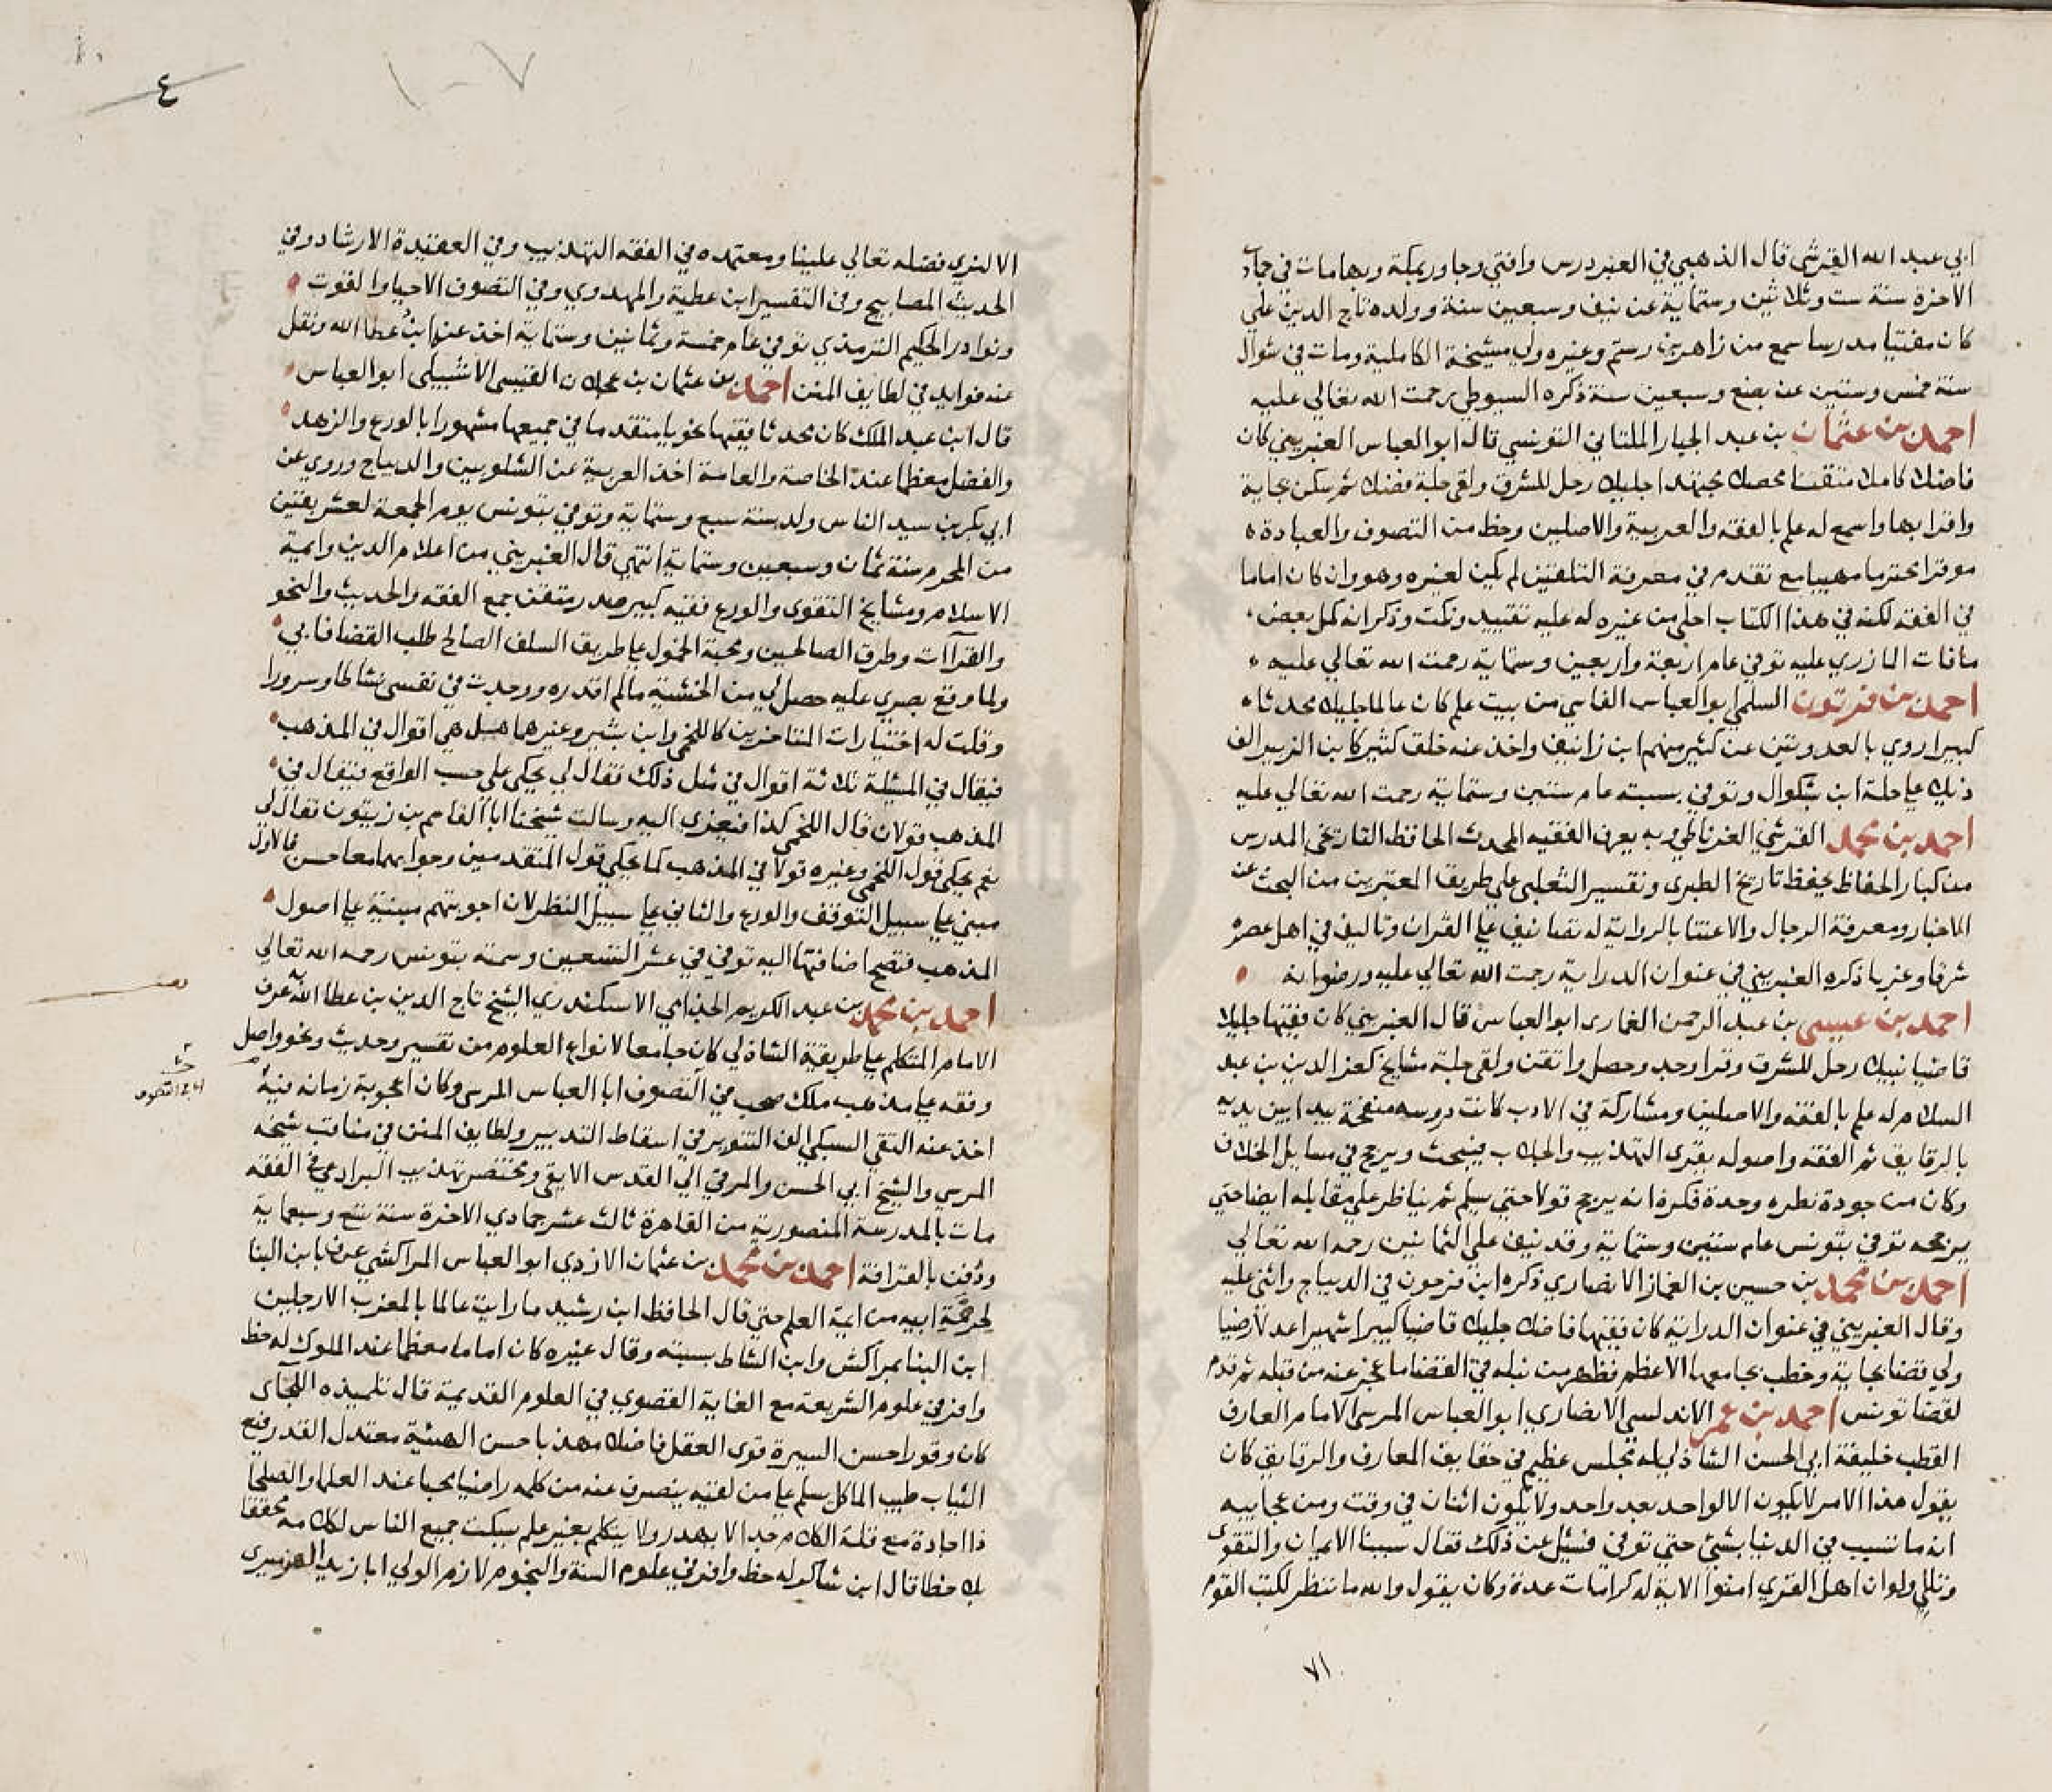 ابي عبد الله القرشي قال الذهبي في العبر درس وافتي وجاور بمكة وبها مات في جماد
الاخرة سنة ست وثلاثين وستماية عن نيف وسبعين سنة وولده تاج الدين علي
كان مفتيا مدرسا سمع من زاهر بن رستم وغيره ولي مشيخة الكاملية ومات في شوال
سنة خمس وستين عن بضع وسبعين سنة ذكره السيوطي رحمت الله تعالي عليه
احمد بن عثمان بن عبد الجبار الملتاني التونسي قال ابو العباس الغبريني كان
فاضلا كاملا متقنا محصلا مجتهدا جليلا رحل للمشرق ولقي جلة فضلا ثم سكن بجاية
واقرا بها واسمع له علم بالفقه والعربية والاصلين وحظ من التصوف والعبادة
موقرا محترما مهيبا مع تقدم في معرفة التلقين لم يكن لغيره وهو وان كان اماما
في الفقه لكنه في هذا الكتاب احلي من غيره له عليه تقييد ونكت وذكر انه كمل بعض
ما فات المازري عليه توفي عام اربعة واربعين وستماية رحمت الله تعالي عليه
احمد بن فرتون السلمي ابو العباس الفاسي من بيت علم كان عالما جليلا محدثا
كبيرا روي بالعدوتين عن كثير منهم ابن زانيف واخذ عنه خلق كثير كابن الزبير الف
ذيلا علي صلة ابن بشكوال وتوفي بسبته عام ستين وستماية رحمت الله تعالي عليه
احمد بن محمد القرشي الغرناطي وبه يعرف الفقيه المحدث الحافظ التاريخي المدرس
من كبار الحفاظ يحفظ تاريخ الطبري وتفسير الثعلبي علي طريق المعتبرين من البحث عن
الاخبار ومعرفة الرجال والاعتنا بالرواية له تصانيف علي القران وتاليف في اهل عصره
شرقا وغربا ذكره الغبريني في عنوان الدراية رحمت الله تعالي عليه ورضوانه
احمد بن عيسي بن عبد الرحمن الغماري ابو العباس قال الغبريني كان فقيها جليلا
قاضيا نبيلا رحل للمشرق وقرا وجد وحصل واتقن ولقي جلة مشايخ كعز الدين بن عبد
السلام له علم بالفقه والاصلين ومشاركة في الادب كانت دروسه منقحة يبدا بين يديه
بالرقايق ثم الفقه واصوله يقري التهذيب والجلاب فيبحث ويرجح في مسايل الخلاف
وكان من جودة نظره وحدة فكره انه يرجح قولا حتي يسلم ثم يناظر علي مقابله ايضا حتي
يرجحه توفي بتونس عام ستين وستماية وقد نيف علي الثمانين رحمه الله تعالي
احمد بن محمد بن حسين بن الغماز الانصاري ذكره ابن فرحون في الديباج واثني عليه
وقال الغبريني في عنوان الدراية كان فقيها فاضلا جليلا قاضيا كبيرا شهيرا عدلا رضيا
ولي قضا بجاية وخطب بجامعها الاعظم فظهر من نبله في القضا ما عجز عنه من قبله ثم قدم
لقضا تونس احمد بن عمر الاندلسي الانصاري ابو العباس المرسي الامام العارف
القطب خليفة ابي الحسن الشاذلي له مجلس عظيم في حقايق المعارف والرقايق كان
يقول هذا الامر لا يكون الا لواحد بعد واحد ولا يكون اثنان في وقت ومن عجايبه
انه ما تسبب في الدنيا بشئ حتي توفي فسئل عن ذلك فقال سببنا الايمان والتقوي
وتلي ولو ان اهل القري امنوا الاية له كرامات عدة وكان يقول والله ما تنظر لكتب القوم
٧١
٤
١٠٧
الا لنري فضله تعالي علينا ومعتمده في الفقه التهذيب وفي العقيدة الارشاد وفي
الحديث المصابيح وفي التفسير ابن عطية والمهدوي وفي التصوف الاحيا والقوت
ونوادر الحكيم الترمذي توفي عام خمسة وثمانين وستماية اخذ عنه ابن عطا الله ونقل
عنه فوايد في لطايف المنن احمد بن عثمان بن عجلان القيسي الاشبيلي ابو العباس
قال ابن عبد الملك كان محدثا فقيها نحويا متقدما في جميعها مشهورا بالورع والزهد
والفضل معظما عند الخاصة والعامة اخذ العربية عن الشلوبين والدباج وروي عن
ابي بكر بن سيد الناس ولد سنة سبع وستماية وتوفي بتونس يوم الجمعة لعشر بقين
من المحرم سنة ثمان وسبعين وستماية انتهي قال الغبريني من اعلام الدين وايمة
الاسلام ومشايخ التقوي والورع فقيه كبير صدر متفنن جمع الفقه والحديث والنحو
والقرآات وطرق الصالحين ومحبة الخمول علي طريق السلف الصالح طلب القضا فابي
ولما وقع بصري عليه حصل لي من الخشية ما لم اقدره ووجدت في نفسي نشاطا وسرورا
وقلت له اختيارات المتاخرين كاللخمي وابن بشير وغيرها هل هي اقوال في المذهب
فيقال في المسئلة ثلاثة اقوال في مثل ذلك فقال لي يحكي علي حسب الواقع فيقال في
المذهب قولان قال اللخمي كذا فيعزي اليه وسالت شيخنا ابا القاسم بن زيتون فقال لي
نعم يحكي قول اللخمي وغيره قولا في المذهب كما يحكي قول المتقدمين وجوابهما معا حسن فالاول
مبني علي سبيل التوقف والورع والثاني علي سبيل النظر لان اجوبتهم مبنية علي اصول
المذهب فتصح اضافتها اليه توفي في عشر التسعين وستمية بتونس رحمه الله تعالي
احمد بن محمد بن عبد الكريم الجذامي الاسكندري الشيخ تاج الدين بن عطا الله عرف
الامام المتكلم علي طريقة الشاذلي كان جامعا لانواع العلوم من تفسير وحديث ونحو واصل
وفقه علي مذهب ملك صحب في التصوف ابا العباس المرسي وكان اعجوبة زمانه فيه
اخذ عنه التقي السبكي الف التنوير في اسقاط التدبير ولطايف المنن في مناقب شيخه
المرسي والشيخ ابي الحسن والمرقي الي القدس الابقي ومختصر تهذيب البرادعي في الفقه
مات بالمدرسة المنصورية من القاهرة ثالث عشر جمادي الاخرة سنة تسع وسبعماية
ودفن بالقرافة احمد بن محمد بن عثمان الازدي ابو العباس المراكشي عرف بابن البنا
لحرفة ابيه من ايمة العلم حتي قال الحافظ ابن رشيد ما رايت عالما بالمغرب الا رجلين
ابن البنا بمراكش وابن الشاط بسبته وقال غيره كان اماما معظما عند الملوك له حظ
وافر في علوم الشريعة مع الغاية القصوي في العلوم القديمة قال تلميذه اللجاي
كان وقورا حسن السيرة قوي العقل فاضلا مهذبا حسن الهيئة معتدل القد رفيع
الثياب طيب الماكل يسلم علي من لقيه ينصرف عنه من كلمه راضيا محببا عند العلما والصلحا
ذا اجادة مع قلة الكلام جدا لا يهدر ولا يتكلم بغير علم يسكت جميع الناس لكلامه محققا
قال ابن شاكر له حظ وافر في علوم السنة والنجوم لازم الولي ابا زيد الهزميري